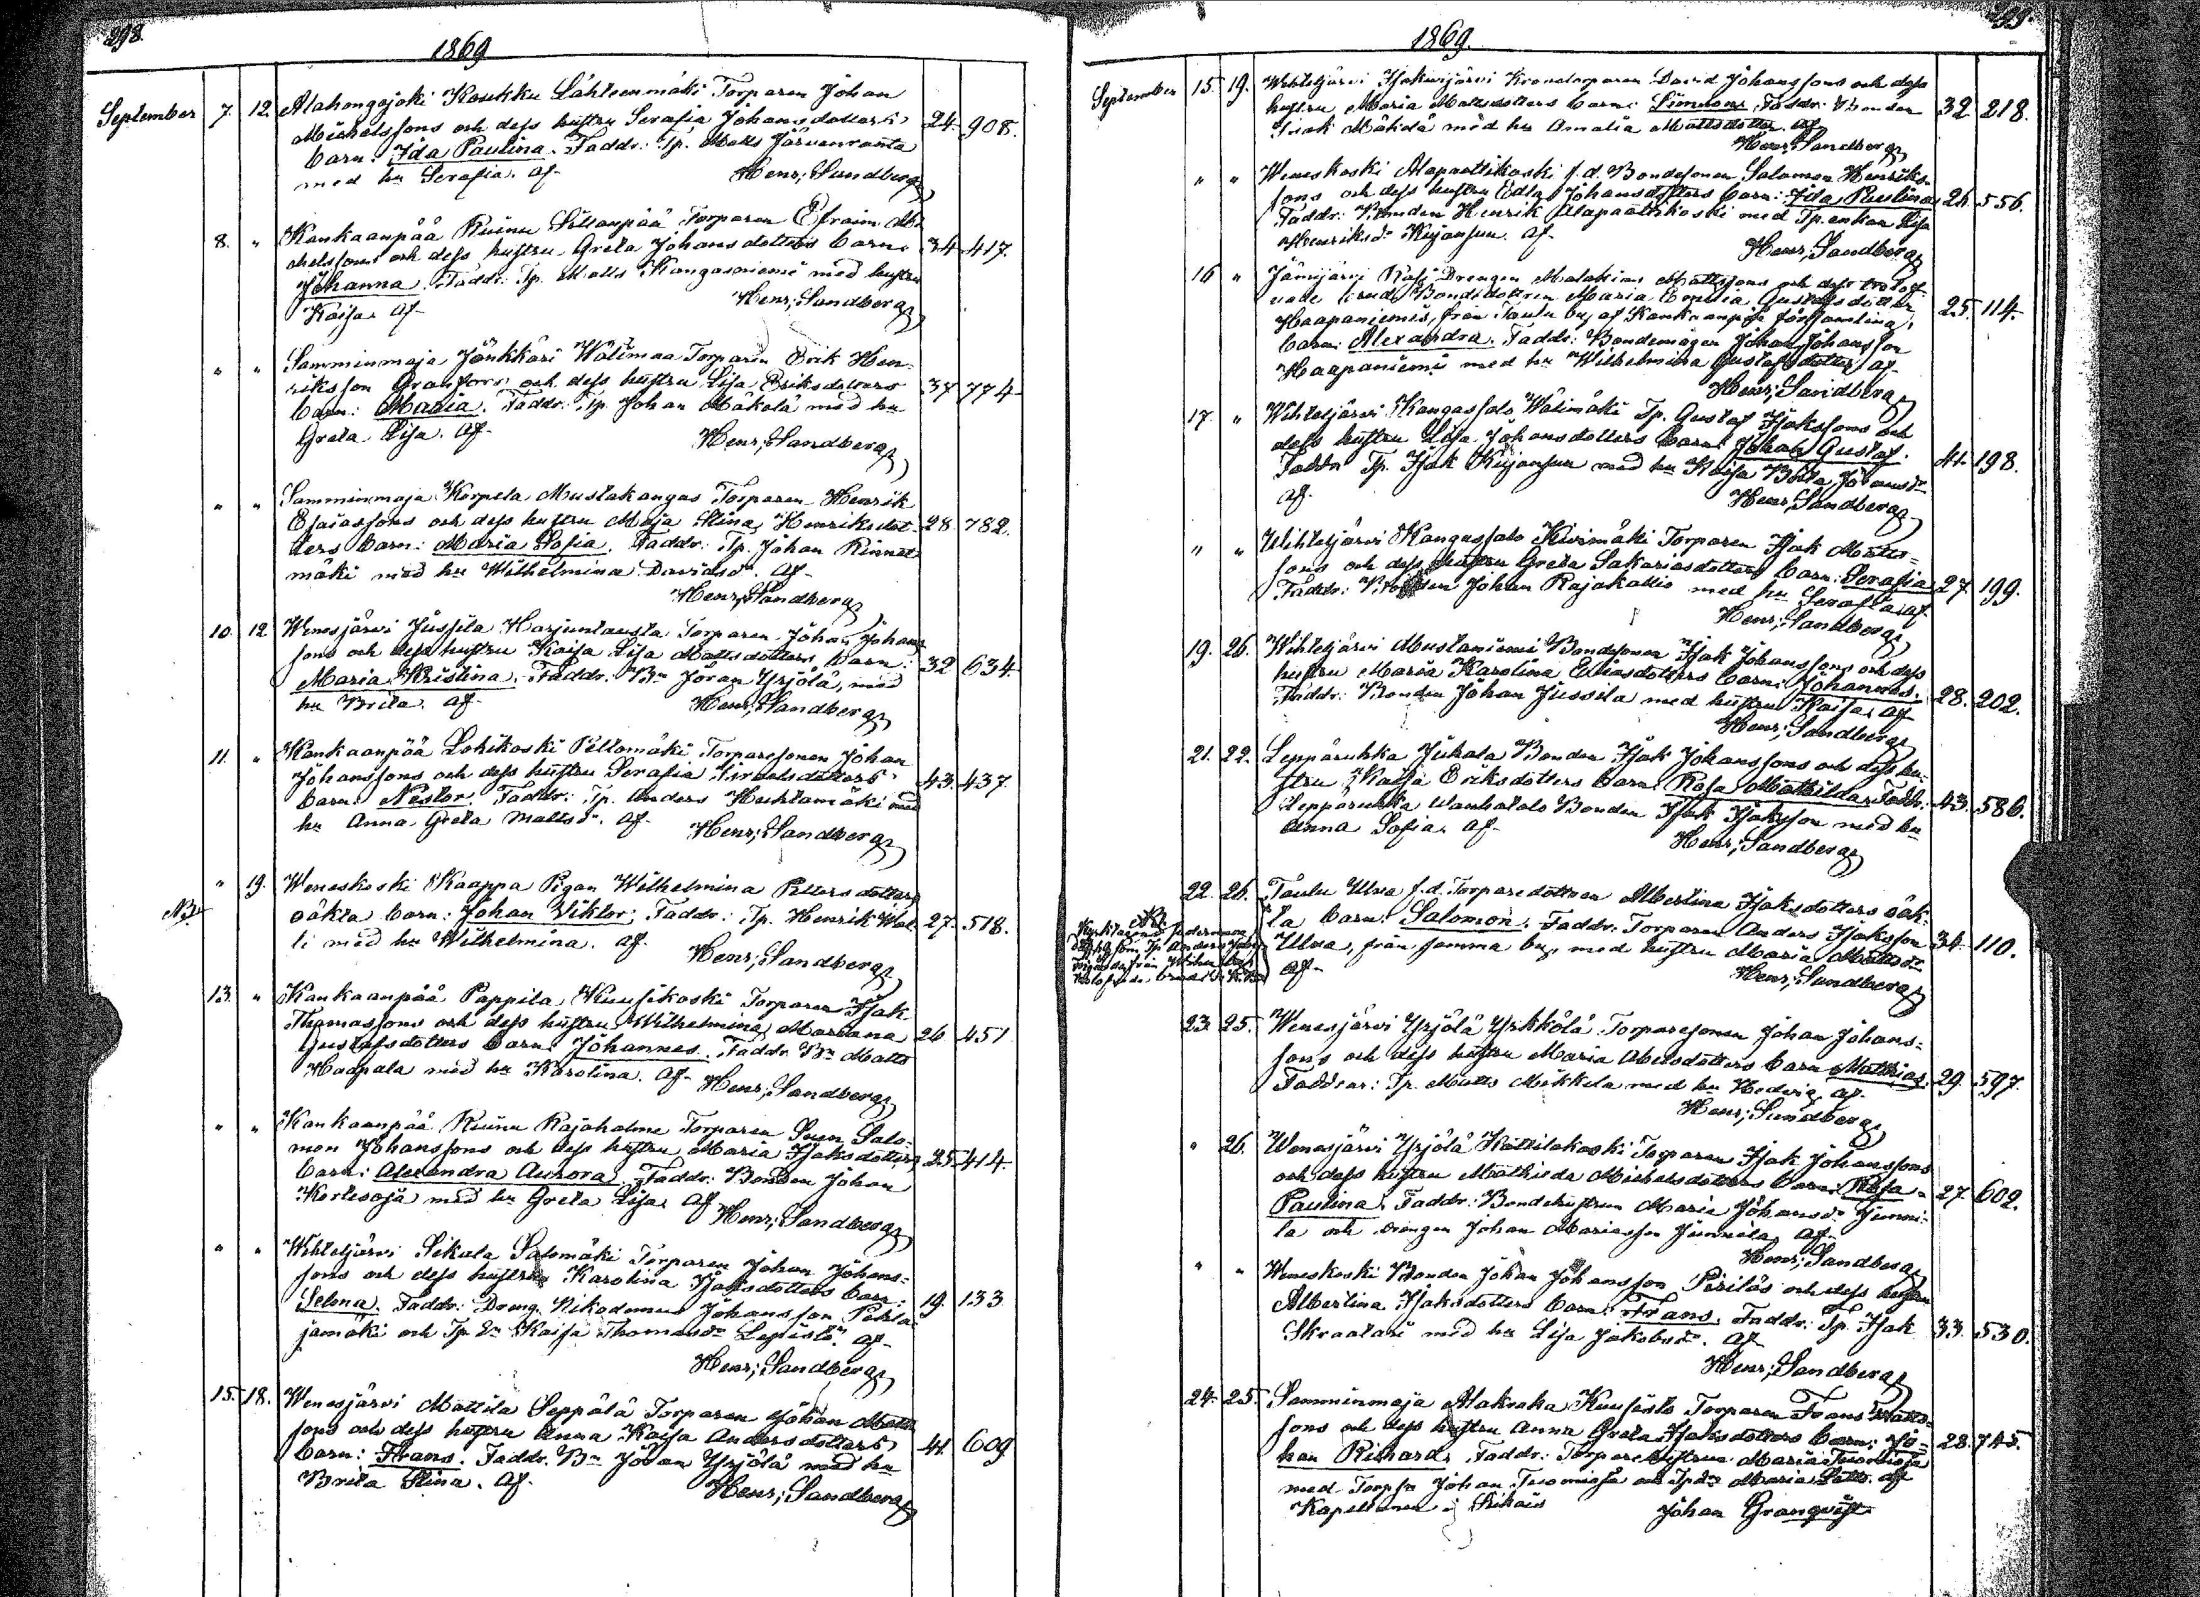 298.
1869
September 7. 12. Alahongajoki Koukku Lähteenmäki Torparen Johan
Michelssons och dess hustru Serafia Johansdotters 24. 908.
barn: Ida Paulina. Faddr: Tp. Matts Järvenranta
med hu Serafia. af
Henr; Sandberg
8. " Kankaanpää Ruinu Sillanpää Torparen Efraim Mi-
chelssons och dess hustru Greta Johansdotters barn: 34 417.
Johanna. Faddr: Tp. Matts Kangasniemi med hustru
Kaisa af
Henr; Sandberg
" " Samminmaja Jänkkäri Wälimaa Torparen Erik Hen-
riksson Granfors och dess hustru Lisa Eriksdotters 37 774
barn: Maria. Faddr: Tp. Johan Mäkelä med hu
Greta Lisa. af
Henr; Sandberg
" " Samminmaja Korpela Mustakangas Torparen Henrik
Esaiassons och dess hustru Maja Stina Henriksdot-
ters barn: Maria Sofia. Faddr: Tp. Johan Rinnet- 28 782.
mäki med hu Wilhelmina Davidsd. af
Henr; Sandberg
10. 12 Wenesjärvi Jussila Harjuntausta Torparen Johan Johans-
sons och dess hustru Kaisa Lisa Mattsdotters barn: 32 634
Maria Kristina. Faddr: Bn Jöran Yrjölä, med
hu Brita. af
Henr; Sandberg
11. " Kankaanpää Lohikoski Peltomäki Torparesonen Johan
Johanssons och dess hustru Serafia Israelsdotters 43. 437.
barn: Nestor. Faddr: Tp. Anders Huhtamäki med
hu Anna Greta Mattsdr. af
Henr; Sandberg
NB. " 19. Weneskoski Kaappa Pigan Wilhelmina Pettersdotters
oäkta barn: Johan Viktor; Faddr: Tp. Henrik Wal- 27. 518.
li med hu Wilhelmina. af
Henr; Sandberg
13. " Kankaanpää Pappila Kuusikoski Torparen Isak
Thomassons och dess hustru Wilhelmina Mariana 26 451
Gustafsdotters barn: Johannes. Faddr Bn Matts
Haapala med hu Karolina. af
Henr; Sandberg
" " Kankaanpää Ruinu Rajaholme Torparen Sven Salo-
mon Johanssons och dess hustru Maria Isaksdotters 25. 414
barn: Alexandra Aurora. Faddr: Bonden Johan
Kertesoja med hu Greta Lisa. af
Henr; Sandberg
" " Wihteljärvi Sikala Salomäki Torparen Johan Johans-
sons och dess hustru Karolina Isaksdotters barn:
Selma. Faddr: Dreng. Nikodemus Johansson Pohla- 19. 133
jamäki och Tp. En Kaisa Thomasdr Lepistö. af
Henr; Sandberg
15. 18. Wenesjärvi Mattila Seppälä Torparen Johan Matts-
sons och dess hustru Anna Kaisa Andersdotters 41. 609
barn: Frans. Faddr. Bn Jöran Yrjölä med hu
Brita Stina. af
Henr; Sandberg
1869.
September 15. 19. Wihteljärvi Isakinjärvi Kronotorparen David Johanssons och dess
hustru Maria Mattsdotters barn: Faddr: Bonden 32 218.
Isak Mäkilä med hu Amalia Mattsdotter. af
Henr; Sandberg
" " Weneskoski Alapaattikoski f.d. Bondesonen Salomon Henriks-
sons och dess hustru Edla Johansdotters barn: Ida Paulina 26 556.
Faddr: Bonden Henrik Alapaattikoski med Tp. enkan Lisa
Henriksdr Kujansuu. af
Henr; Sandberg
16 " Jämijärvi Drengen Malakias Mattssons och dess trolof-
vade brud, Bondedottren Maria Emelia Gustafsdotter
Haapaniemis, från Taulu by, af Kankaanpää församling, 25. 114.
barn: Alexandra. Faddr: Bondemågen Johan Johansson
Haapaniemi med hu Wilhelmina Gustafsdotter af
Henr; Sandberg
17. " Wihteljärvi Kangassalo Wälimäki Tp. Gustaf Isakssons och
dess hustru Lisa Johansdotters barn: Johan Gustaf.
Faddr Tp. Isak Kujansuu med hu Kaisa Brita Jöransdr 41. 198.
af
Henr; Sandberg
" " Wihteljärvi Kangassalo Kivimäki Torparen Isak Matts-
sons och dess hustru Greta Sakariasdotters barn: Serafia 27. 199.
Faddr: Bonden Johan Rajakallio med hu Serafia af
Henr; Sandberg
19. 26. Wihteljärvi Mustaniemi Bondesonen Isak Johanssons och dess
hustru Maria Karolina Eliasdotters barn: Johannes.
Faddr: Bonden Johan Jussila med hustru Kaisa. af 28. 202.
Henr; Sandberg
21. 22. Leppäruhka Jukala Bonden Isak Johanssons och dess hu-
stru Kaisa Eriksdotters barn: Rosa Mathilda. Faddr: 43. 586.
Leppäruhka Wanhatalo Bonden Isak Isaksson med hu
Anna Sofia. af
Henr; Sandberg
22. 26. Taulu Ulva f.d. Torparedottren Albertina Isaksdotters oäk-
ta barn: Salomon. Faddr. Torparen Anders Isaksson 34. 110.
Ulva, från samma by, med hustru Maria Mattsdr
af
Henr; Sandberg
NB.
23. 25. Wenesjärvi Yrjölä Yrkkölä Torparesonen Johan Johans-
sons och dess hustru Maria Abelsdotters barn Matthias. 29. 597.
Faddrar: Tp. Matts Mikkola med hu Hedvig. af
Henr; Sandberg
" 26. Wenesjärvi Yrjölä Kattilakoski Torparen Isak Johanssons
och dess hustru Mathilda Michelsdotters barn: Rosa
Paulina. Faddr: Bondehustrun Maria Johansdr Junni- 27. 602.
la och drengen Johan Mariasson Junnila. af
Henr; Sandberg
" " Weneskoski Bonden Johan Johansson Periläs och dess hustru
Albertina Isaksdotters barn: Frans. Faddr: Tp. Isak 33. 530.
Skraatari med hu Lisa Jakobsdr. af
Henr; Sandberg
24. 25. Samminmaja Alakraka Kuusisto Torparen Frans Matts-
sons och dess hustru Anna Greta Isaksdotters barn: Jo- 28. 745.
han Richard. Faddr: Torparehustrun Maria Tuomioja
med Johan Tuomioja och Maria af
Kapellanen i Ikalis Johan Granqvist